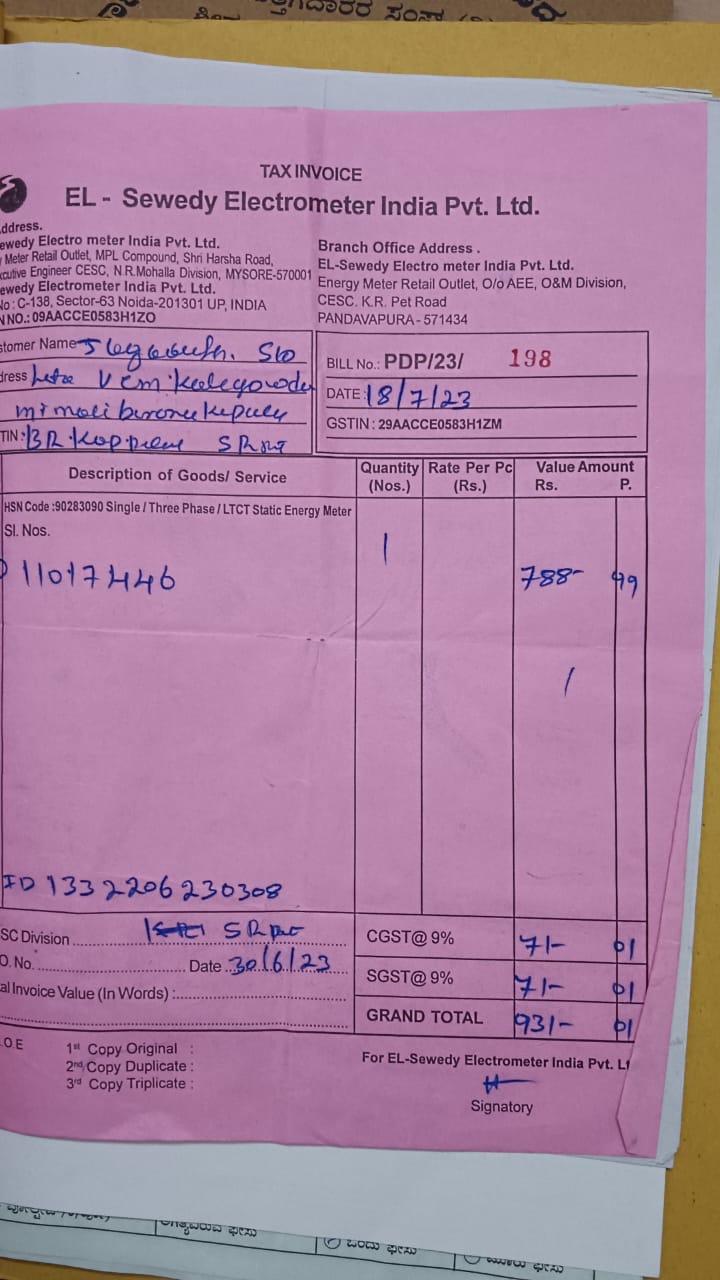 TAX INVOICE
EL - Sewedy Electrometer India Pvt. Ltd.
ddress.
ewedy Electro meter India Pvt. Ltd.
Meter Retail Outlet, MPL Compound, Shri Harsha Road,
cutive Engineer CESC, N.R.Mohalla Division, MYSORE-570001
ewedy Electrometer India Pvt. Ltd.
No : C-138, Sector-63 Noida-201301 UP, INDIA
N NO.: 09AACCE0583H1ZO
Branch Office Address .
EL-Sewedy Electro meter India Pvt. Ltd.
Energy Meter Retail Outlet, O/o AEE, O&M Division,
CESC. K.R. Pet Road
PANDAVAPURA - 571434
stomer Name S/o
dress
TIN:
BILL No.: PDP/23/ 198
DATE : 18/7/23
GSTIN : 29AACCE0583H1ZM
Description of Goods/ Service Quantity (Nos.) Rate Per Pc (Rs.) Value Amount Rs. P.
HSN Code :90283090 Single / Three Phase / LTCT Static Energy Meter
Sl. Nos.
11017446 1 788- 99
ID 1332206230308
SC Division
O. No. Date 30/6/23
al Invoice Value (In Words) :
CGST@ 9% 71- 01
SGST@ 9% 71- 01
GRAND TOTAL 931- 01
.O E
1st Copy Original :
2nd Copy Duplicate :
3rd Copy Triplicate :
For EL-Sewedy Electrometer India Pvt. Lt
Signatory
ಒಂದು ಫೇಸು
ಮೂರು ಫೇಸು